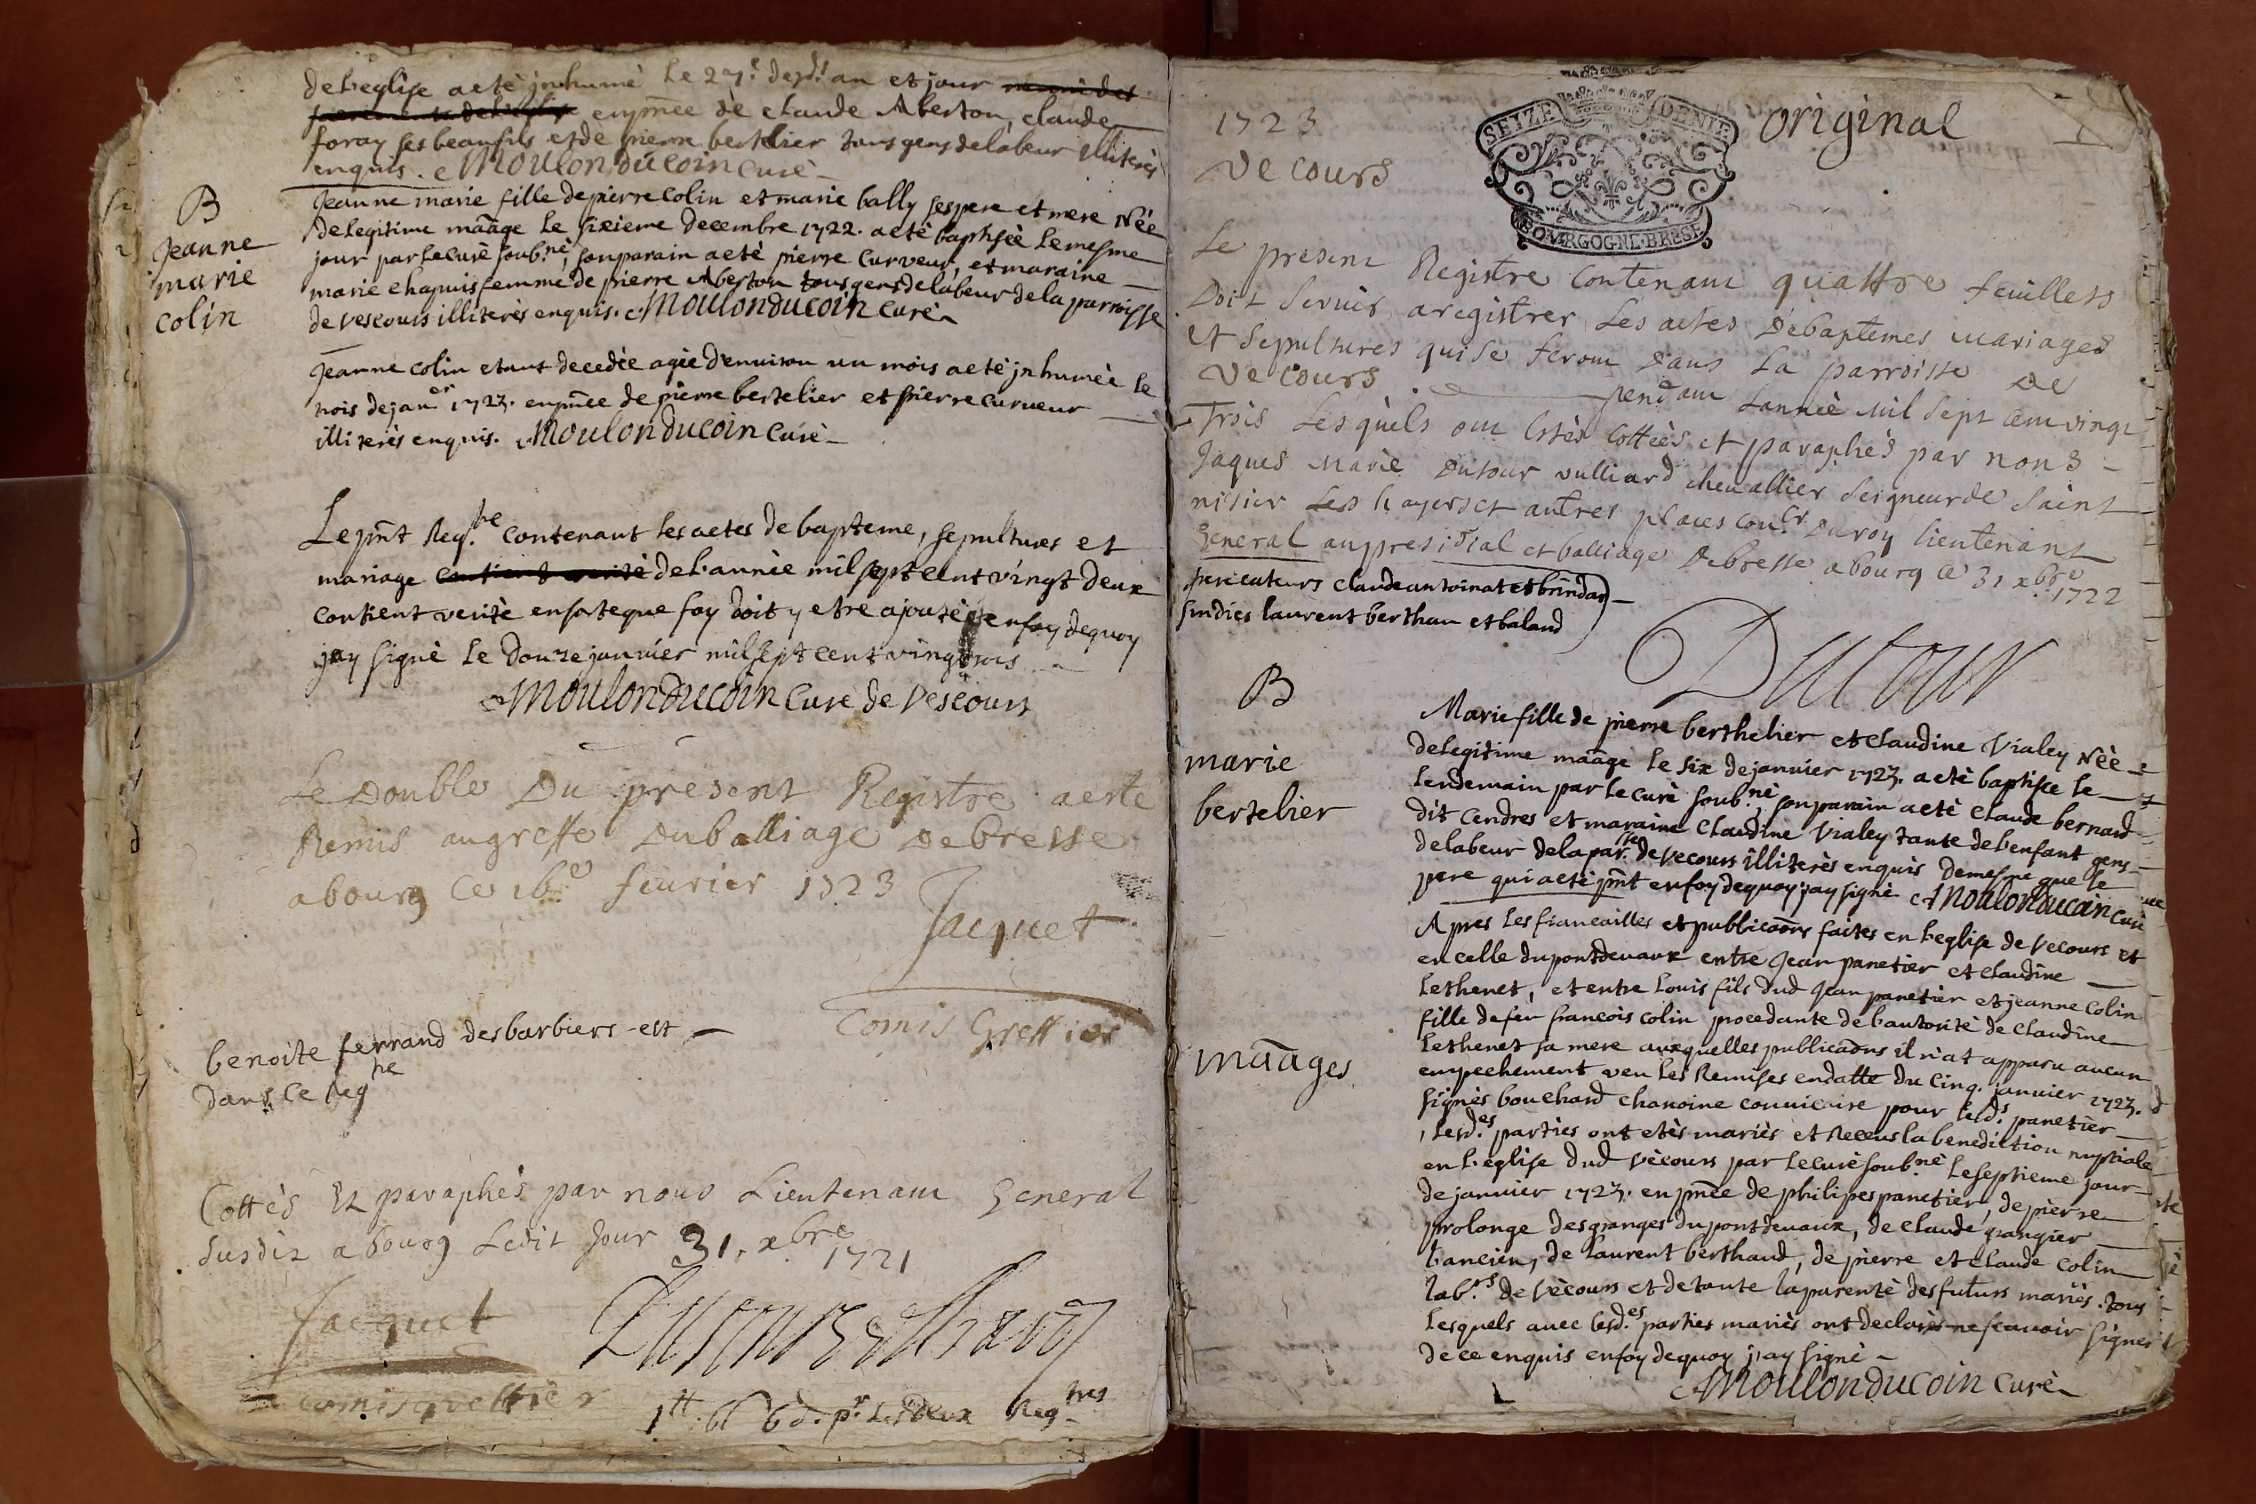 de l'eglise a etè jnhumè le 27.e desd.t an et jour
en pñce de claude Aberton, claude
foray ses beaufils et de pierre berthlier tous gens de labeur illiterès
enquis. Moulonducoin curè
B
Jeanne
marie
colin
Jeanne marie fille de pierre colin et marie bally ses pere et mere Née
de legitime maãge le sixieme decembre 1722. a etè baptisèe le mesme
jour par le curè soub.né, son parain a etè pierre curveur, et maraine
marie chapuis femme de pierre Aberton tous gens de labeur de la parroisse
de vescours illiterès enquis. Moulonducoin curè
Jeanne colin etant decedèe agèe d'environ un mois a etè jnhumèe le
nois de jan.er 1723. en pñce de pierre bertelier et pierre curveur
illiterès enquis. Moulonducoin curè
Le pñt Reg.tre contenant les actes de bapteme, sepultures et
mariage de l'annèe mil sept cent vingt deux
contient veritè en sorte que foy doit y etre ajoutèe en foy de quoy
j'ay signè le douze janvier mil sept cent vingt trois
Moulonducoin Curè de Vescours
Le Double Du present Registre a este
Remis au greffe Du balliage De bresse
a bourg ce 16.e fevrier 1723
Jacquet
Comis Greffier
benoite ferrand des barbiers est
dans ce Reg.tre
Cottès Et paraphès par nous Lieutenant General
susdit a bourg Ledit jour 31. xbre 1721
Jacquet
comis greffier
1tt 6s 6d. pr. Les deux Reg.tres
1723
Vecours
SEIZE DENIE
BOVRGOGNE·BRESE
original
Le present Registre contenant quattre feuillets
Doit servir a registrer Les actes De baptemes mariages
et sepultures qui se feront Dans La parroisse De
Vecours pendant Lannèe mil sept cent vingt
Trois Lesquels ont Estès cottèes et paraphès par nous
Jaques Marie Dutour vulliard chevallier seigneur de saint
nisier Les hayers et autres places con.er Du roy lieutenant
General au presidial et balliage De bresse a bourg ce 31 xbre
1722
perecateurs claude antoinat et brindas
sindics laurent berthau et baland
Dutour
B
marie
bertelier
Marie fille de pierre berthelier et claudine Vialey Née
de legitime maãge le six de janvier 1723. a etè baptisèe le
lendemain par le curè soub.né, son parain a etè claude bernard
dit Cendres et maraine Claudine Vialey tante de l'enfant gens
de labeur de la par.sse de vecours illiterès enquis demesme que le
pere qui a etè pñt en foy de quoy j'ay signè Moulonducoin curè
maãges
Apres les fiancailles et publicaõns faites en l'eglise de vecours et
en celle du pontdevaux entre Jean panetier et claudine
Lethenet, et entre Louis fils dud Jean panetier et jeanne colin
fille de feu francois colin procedante de l'autoritè de claudine
Lethenet sa mere auxquelles publicaõns il n'a apparu aucun
empechement veu les Remises en datte du cinq. janvier 1723.
signès bouchard chanoine conuicaire pour led.t panetier
, lesd.es parties ont etès mariès et Recus la benediction nuptiale
en l'eglise dud vècours par le curè soub.né Le septieme jour
de janvier 1723. en pñce de philipes panetier, de pierre
prolonge des granges du pontdevaux, de claude grangier
l'ancien, de Laurent berthaud, de pierre et claude colin
lab.rs de vècours et de toute la parentè des futurs mariès. tous
lesquels avec lesd.es parties mariès ont declarès ne scavoir signer
de ce enquis en foy de quoy j'ay signè
Moulonducoin curè